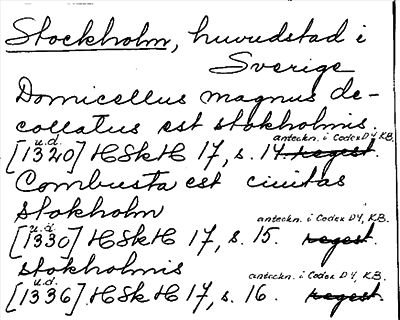 Stockholm, huvudstad i
Sverige
Domicellus magnus de-
collatus est stokholmis.
u.d. anteckn. i Codex D4, KB.
[1320] HSkH 17, s. 14 regest.
Combusta est ciuitas
stokholm
u.d. anteckn. i Codex D4, KB.
[1330] HSkH 17, s. 15. regest.
stokholmis
u.d. anteckn. i Codex D4, KB.
[1336] HSkH 17, s. 16. regest.